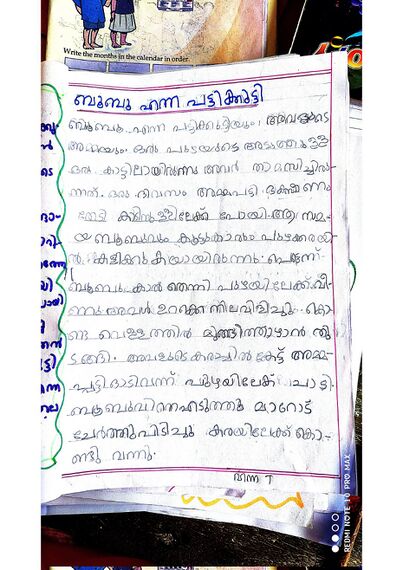 Write the months in the calendar in order.
ബുബു എന്ന പട്ടിക്കുട്ടി
ബുബു എന്ന പട്ടിക്കുട്ടിയും, അവളുടെ
അമ്മയും ഒരു പുഴയുടെ അടുത്തുള്ള
ഒരു കാട്ടിലായിരുന്നു അവർ താമസിച്ചിരു-
ന്നത്. ഒരു ദിവസം അമ്മപട്ടി ഭക്ഷണം
തേടി കാട്ടിനുള്ളിലേക്ക് പോയി. ആ സമ-
യ ബുബുവും കൂട്ടുകാരും പുഴക്കരയി-
ൽ കളിക്കുകയായിരുന്നു. പെട്ടെന്ന്
ബുബു കാൽ തെന്നി പുഴയിലേക്ക് വീ-
ണു അവൾ ഉറക്കെ നിലവിളിച്ചു. കൊ-
ണ്ട് വെള്ളത്തിൽ മുങ്ങിത്താഴാൻ തു-
ടങ്ങി. അവളുടെ കരച്ചിൽ കേട്ട് അമ്മ-
പ്പട്ടി ഓടിവന്ന് പുഴയിലേക് ചാടി
ബുബുവിനെ എടുത്തു മാറോട്
ചേർത്തുപിടിച്ചു കരയിലേക്ക് കൊ-
ണ്ടു വന്നു.
REDMI NOTE 10 PRO MAX